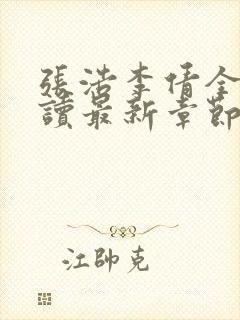 張浩李倩全
讀最新章節
江帥克